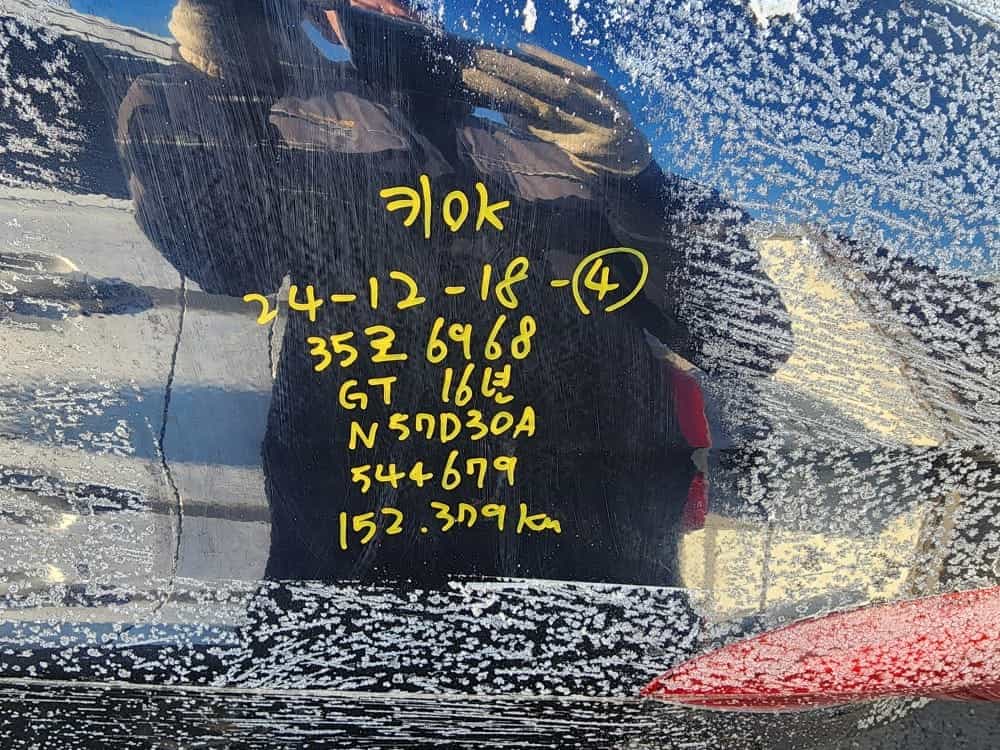 키OK
24-12-18-④
35로 6968
GT 16년
N57D30A
544679
152.379km